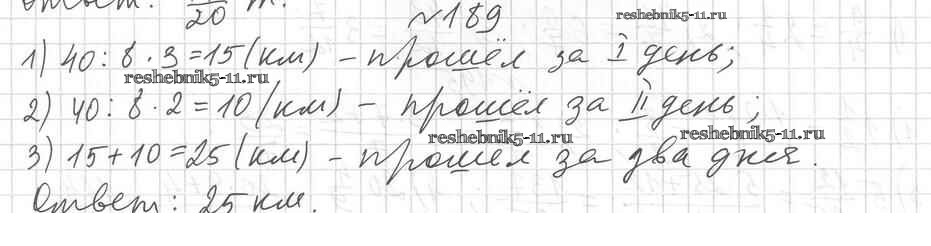 Ответ: 20 т.
№189 reshebnik5-11.ru
1) 40 : 8 · 3 = 15 (км) – прошёл за I день;
reshebnik5-11.ru
2) 40 : 8 · 2 = 10 (км) – прошёл за II день;
reshebnik5-11.ru reshebnik5-11.ru
3) 15 + 10 = 25 (км) – прошел за два дня.
Ответ: 25 км.